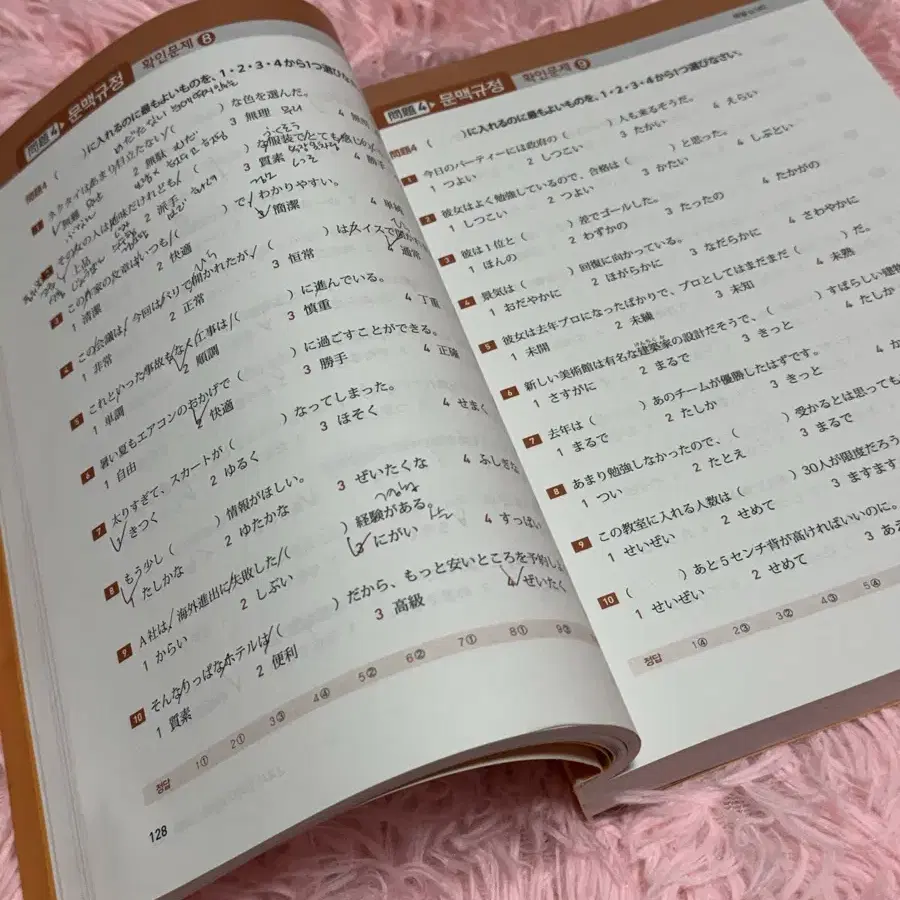 問題4 문맥규정 확인문제 8
問題4 ( )に入れるのに最もよいものを、1・2・3・4から1つ選びな
1 ネクタイはあまり目立たない( )な色を選んだ。
1 無難 2 無駄 3 無理 4 無
2 その女の人は地味だけれども( )な服装でとても感じが
1 上品 2 派手 3 質素 4 勝手
3 この作家の文章はいつも( )でわかりやすい。
1 清潔 2 快適 3 簡潔 4 単純
4 この会議は、今回はパリで開かれたが、( )はスイスで開かれ
1 非常 2 正常 3 恒常 4 通常
5 これといった事故もなく仕事は( )に進んでいる。
1 単調 2 順調 3 慎重 4 丁重
6 暑い夏もエアコンのおかげで( )に過ごすことができる。
1 自由 2 快適 3 勝手 4 正確
7 太りすぎて、スカートが( )なってしまった。
1 きつく 2 ゆるく 3 ほそく 4 せまく
8 もう少し( )情報がほしい。
1 たしかな 2 ゆたかな 3 ぜいたくな 4 ふしぎな
9 A社は、海外進出に失敗した( )経験がある。
1 からい 2 しぶい 3 にがい 4 すっぱい
10 そんなりっぱなホテルは( )だから、もっと安いところを予約し
1 質素 2 便利 3 高級 4 ぜいたく
정답 1① 2① 3③ 4④ 5② 6② 7① 8① 9③
128
問題4 문맥규정 확인문제 9
問題4 ( )に入れるのに最もよいものを、1・2・3・4から1つ選びなさい。
1 今日のパーティーには政府の( )人も来るそうだ。
1 つよい 2 しつこい 3 たかい 4 えらい
2 彼女はよく勉強しているので、合格は( )と思った。
1 しつこい 2 つよい 3 かたい 4 しぶとい
3 彼は1位と( )差でゴールした。
1 ほんの 2 わずかの 3 たったの 4 たかがの
4 景気は( )回復に向かっている。
1 おだやかに 2 ほがらかに 3 なだらかに 4 さわやかに
5 彼女は去年プロになったばかりで、プロとしてはまだまだ( )だ。
1 未開 2 未練 3 未知 4 未熟
6 新しい美術館は有名な建築家の設計だそうで、( )すばらしい建物
1 さすがに 2 まるで 3 きっと 4 たしか
7 去年は( )あのチームが優勝したはずです。
1 まるで 2 たしか 3 きっと
8 あまり勉強しなかったので、( )受かるとは思っても
1 つい 2 たとえ 3 まるで
9 この教室に入れる人数は( )30人が限度だろう
1 せいぜい 2 せめて 3 ますます
10 ( )あと5センチ背が高ければいいのに。
1 せいぜい 2 せめて 3 ある
정답 1④ 2③ 3② 4③ 5④